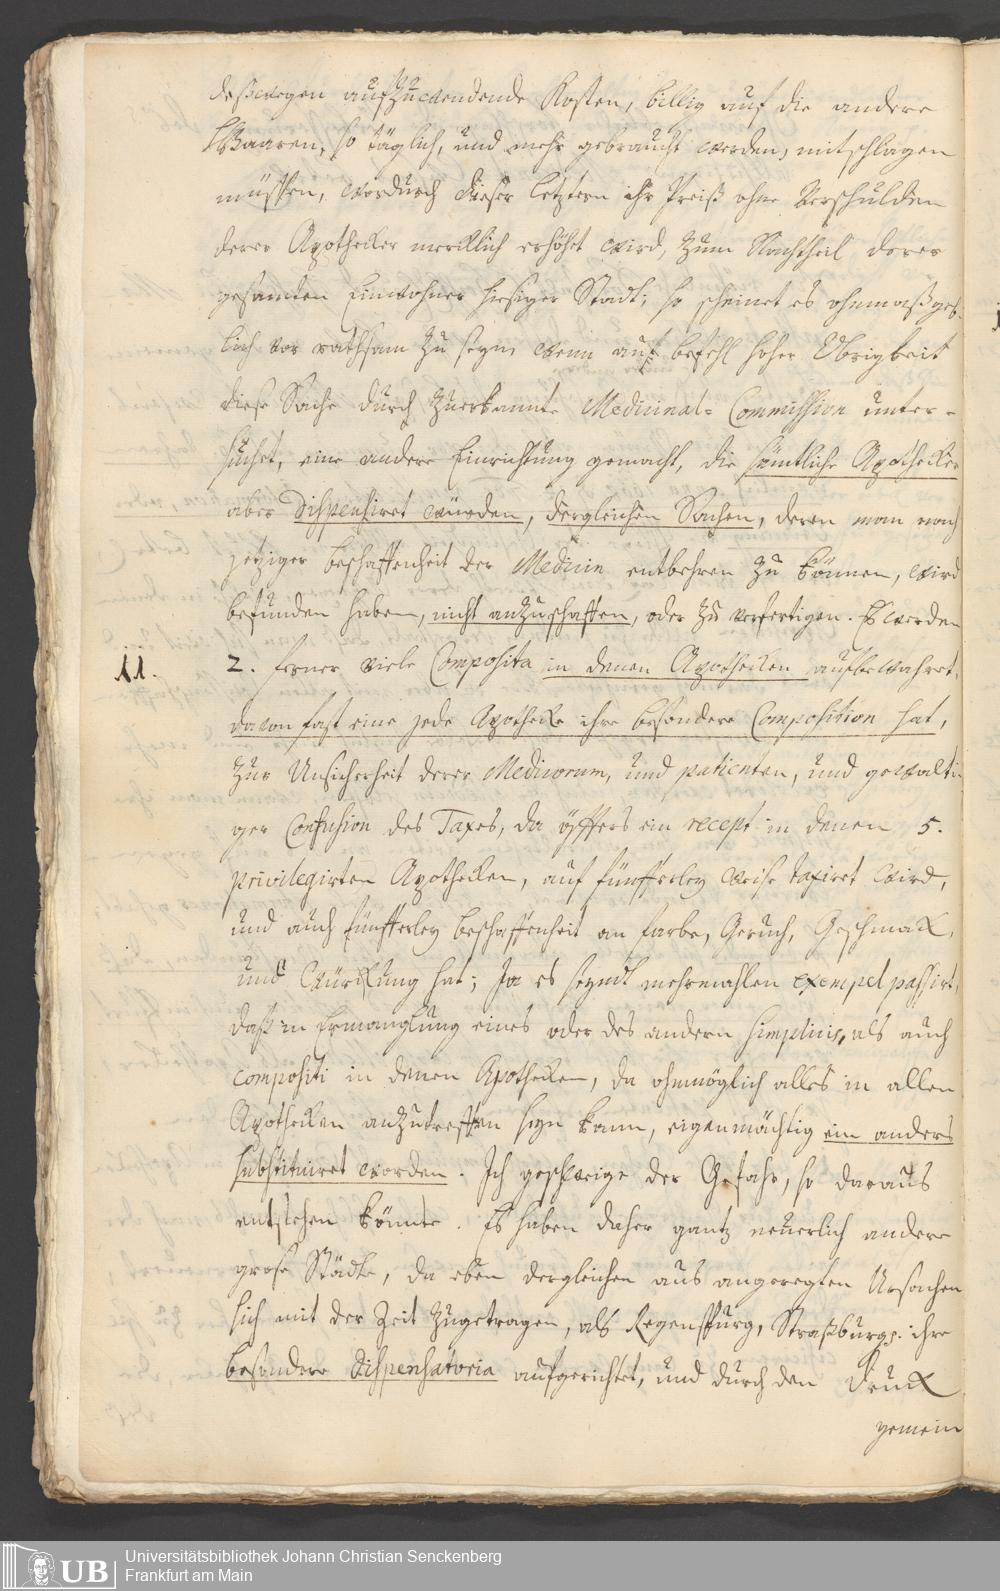 deßwegen aufzuwendende Kosten, billig auf die andere
Waaren, so täglich, und mehr gebraucht werden, mitschlagen
müssen, wordurch dieser letztern ihr Preiß ohne Verschulden
derer Apothecker mercklich erhöhet wird, zum Nachtheil derer
gesamten Einwohner hiesiger Stadt; so scheinet es ohnmaßgeb-
lich vor rathsam zu seyn, wenn auf befehl hoher Obrigkeit
diese Sache durch zuerkannte Medicinal-Commission unter-
suchet, eine andere Einrichtung gemacht, die sämtliche Apothecker
aber dispensiret würden, dergleichen Sachen, deren man nach
jetziger beschaffenheit der Medicin entbehren zu können, wird
befunden haben, nicht anzuschaffen, oder zu verfertigen. Es werden
11. 2. ferner viele Composita in denen Apothecken aufbewahret,
davon fast eine jede Apothecke ihre besondere Composition hat,
zur Unsicherheit derer Medicorum, und patienten, und gewalti-
ger Confusion des Taxes, da öffters ein recept in denen 5.
privilegirten Apothecken, auf fünfferley weise taxiret wird,
und auch fünfferley beschaffenheit an farbe, Geruch, Geschmack,
und Würckung hat; Ja es seynd mehrmahlen exempel passirt,
daß in Ermanglung eines oder des andern simplicis, als auch
compositi in denen Apothecken, da ohnmöglich alles in allen
Apothecken anzutreffen seyn kann, eigenmächtig ein anders
substituiret worden. Ich geschweige der Gefahr, so daraus
entstehen könnte. Es haben daher gantz neuerlich andere
grose Städte, da eben dergleichen aus angeregten Ursachen
sich mit der Zeit zugetragen, als Regenspurg, Straßburg p. ihre
besondere Dispensatoria aufgerichtet, und durch den Druck
gemein
Universitätsbibliothek Johann Christian Senckenberg
Frankfurt am Main
UB